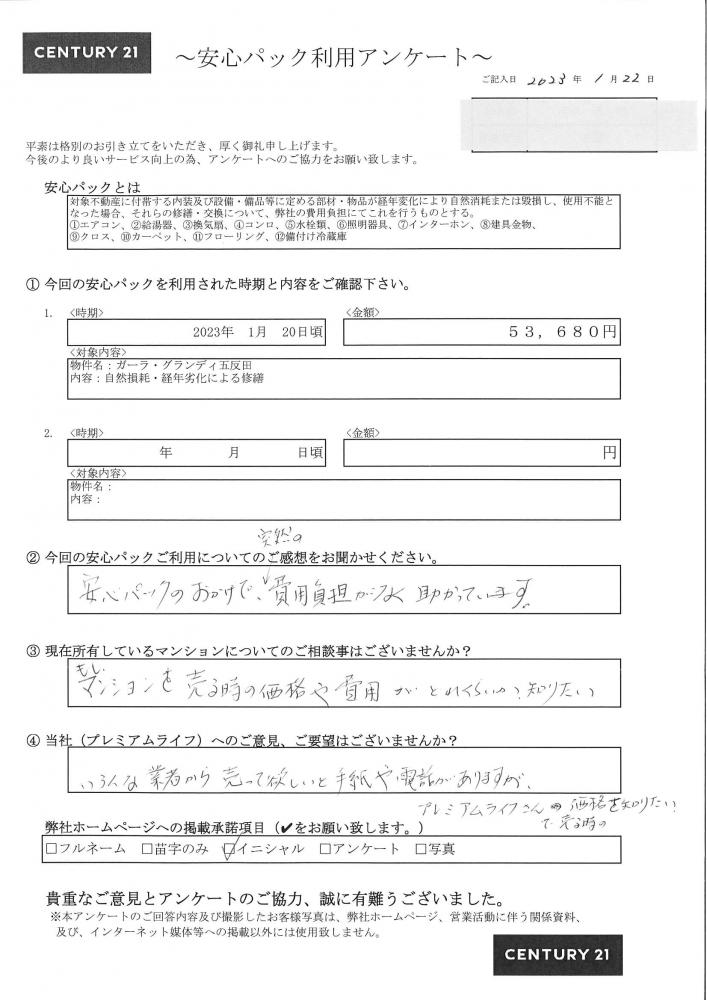 CENTURY 21
～安心パック利用アンケート～
ご記入日 2023 年 1 月 22 日
平素は格別のお引き立てをいただき、厚く御礼申し上げます。
今後のより良いサービス向上の為、アンケートへのご協力をお願い致します。
安心パックとは
対象不動産に付帯する内装及び設備・備品等に定める部材・物品が経年変化により自然消耗または毀損し、使用不能と
なった場合、それらの修繕・交換について、弊社の費用負担にてこれを行うものとする。
①エアコン、②給湯器、③換気扇、④コンロ、⑤水栓類、⑥照明器具、⑦インターホン、⑧建具金物、
⑨クロス、⑩カーペット、⑪フローリング、⑫備付け冷蔵庫
① 今回の安心パックを利用された時期と内容をご確認下さい。
1. <時期> <金額>
2023年 1月 20日頃 53,680円
<対象内容>
物件名：ガーラ・グランディ五反田
内容：自然損耗・経年劣化による修繕
2. <時期> <金額>
年 月 日頃 円
<対象内容>
物件名：
内容：
突然の
② 今回の安心パックご利用についてのご感想をお聞かせください。
安心パックのおかげで、費用負担がなく助かっています。
③ 現在所有しているマンションについてのご相談事はございませんか？
もし
マンションを売る時の価格や費用がどれくらいか？知りたい
④ 当社（プレミアムライフ）へのご意見、ご要望はございませんか？
いろんな業者から売って欲しいと手紙や電話がありますが、
プレミアムライフさん の価格を知りたい
で売る時の
弊社ホームページへの掲載承諾項目（✔をお願い致します。）
□フルネーム □苗字のみ ☑イニシャル □アンケート □写真
貴重なご意見とアンケートのご協力、誠に有難うございました。
※本アンケートのご回答内容及び撮影したお客様写真は、弊社ホームページ、営業活動に伴う関係資料、
及び、インターネット媒体等への掲載以外には使用致しません。
CENTURY 21